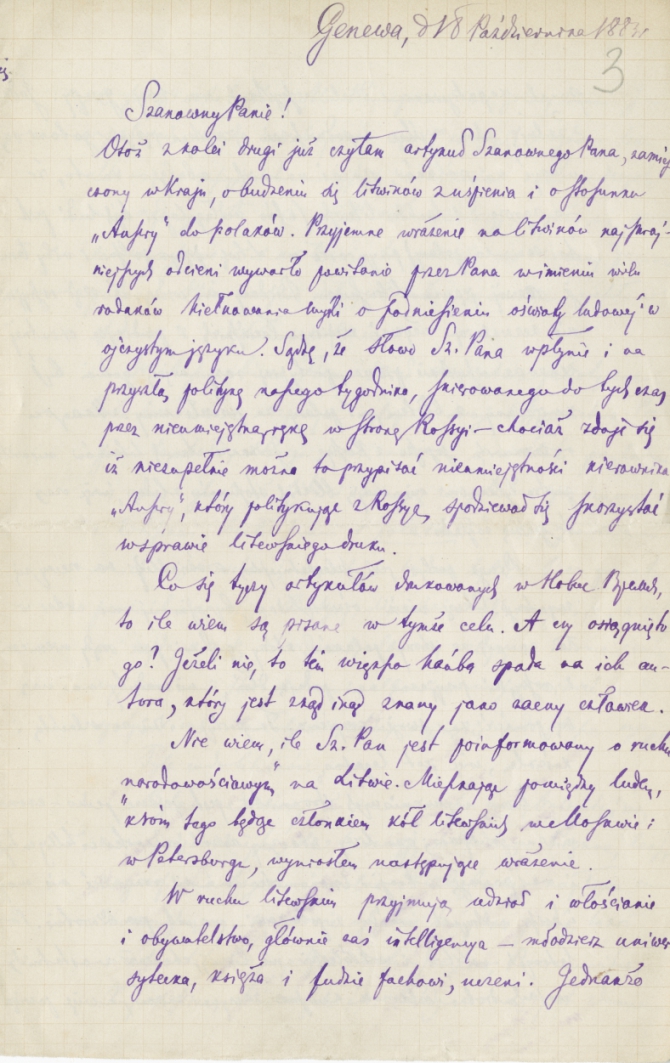 Genewa, d 18 Października 188
3
Szanowny Panie!
Otóż z kolei drugi już czytam artykuł Szanownego Pana, zamiesz
czony w Kraju, o budzeniu się litwinów z uśpienia i o stosunku
„Auszry" do polaków. Przyjemne wrażenie na litwinów najskraj-
niejszych odcieni wywarło powitanie przez Pana w imieniu wielu
rodaków kiełkowania myśli o podniesieniu oświaty ludowej w
ojczystym języku. Sądzę, że słowo Sz. Pana wpłynie i na
przyszłą politykę naszego tygodnika, skierowanego do tych czas
przez nieumiejętną rękę w stronę Rossyi – chociaż zdaje się
iż niezupełnie można to przypisać nieumiejętności kierownika
„Auszry", który politykując z Rossyą, spodziewał się skorzystać
w sprawie litewskiego druku.
Co się tyczy artykułów drukowanych w Новое Время,
to ile wiem są pisane w tymże celu. A czy osiągnięto
go? Jeżeli nie, to tem większa hańba spada na ich au-
tora, który jest zkąd inąd znany jako zacny człowiek.
Nie wiem, ile Sz. Pan jest poinformowany o ruchu
„narodowościowym" na Litwie. Mieszkając pomiędzy ludem,
tego będąc członkiem kół litewskich w Moskwie i
w Petersburgu, wyniosłem następujące wrażenie.
W ruchu litewskim przyjmują udział i włościanie
i obywatelstwo, głównie zaś intelligencya – młodzież uniwer
sytecka, księża i ludzie fachowi, uczeni. Jednakże